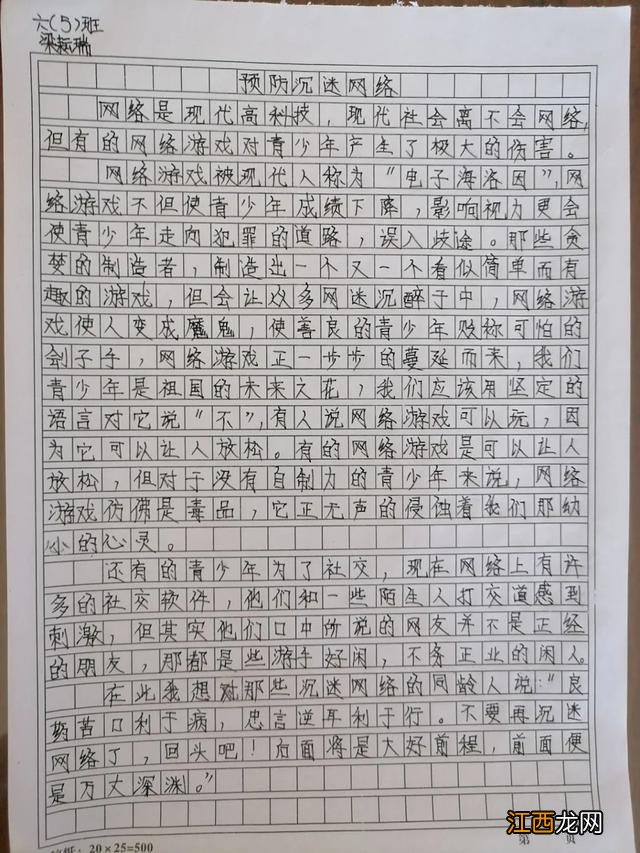 六(5)班
梁耘瑞
预防沉迷网络
网络是现代高科技，现代社会离不会网络，
但有的网络游戏对青少年产生了极大的伤害。
网络游戏被现代人称为“电子海洛因”，网
络游戏不但使青少年成绩下降，影响视力更会
使青少年走向犯罪的道路，误入歧途。那些贪
婪的制造者，制造出一个又一个看似简单而有
趣的游戏，但会让众多网迷沉醉于中，网络游
戏使人变成魔鬼，使善良的青少年贬称可怕的
刽子手，网络游戏正一步步的蔓延而来，我们
青少年是祖国的未来之花，我们应该用坚定的
语言对它说“不”，有人说网络游戏可以玩，因
为它可以让人放松。有的网络游戏是可以让人
放松，但对于没有自制力的青少年来说，网络
游戏仿佛是毒品，它正无声的侵蚀着我们那幼
小的心灵。
还有的青少年为了社交，现在网络上有许
多的社交软件，他们和一些陌生人打交道感到
刺激，但其实他们口中所说的网友并不是正经
的朋友，那都是些游手好闲，不务正业的闲人。
在此我想对那些沉迷网络的同龄人说：“良
药苦口利于病，忠言逆耳利于行。不要再沉迷
网络了，回头吧！后面将是大好前程，前面便
是万丈深渊。”
20×25=500
第 页
江西龙网